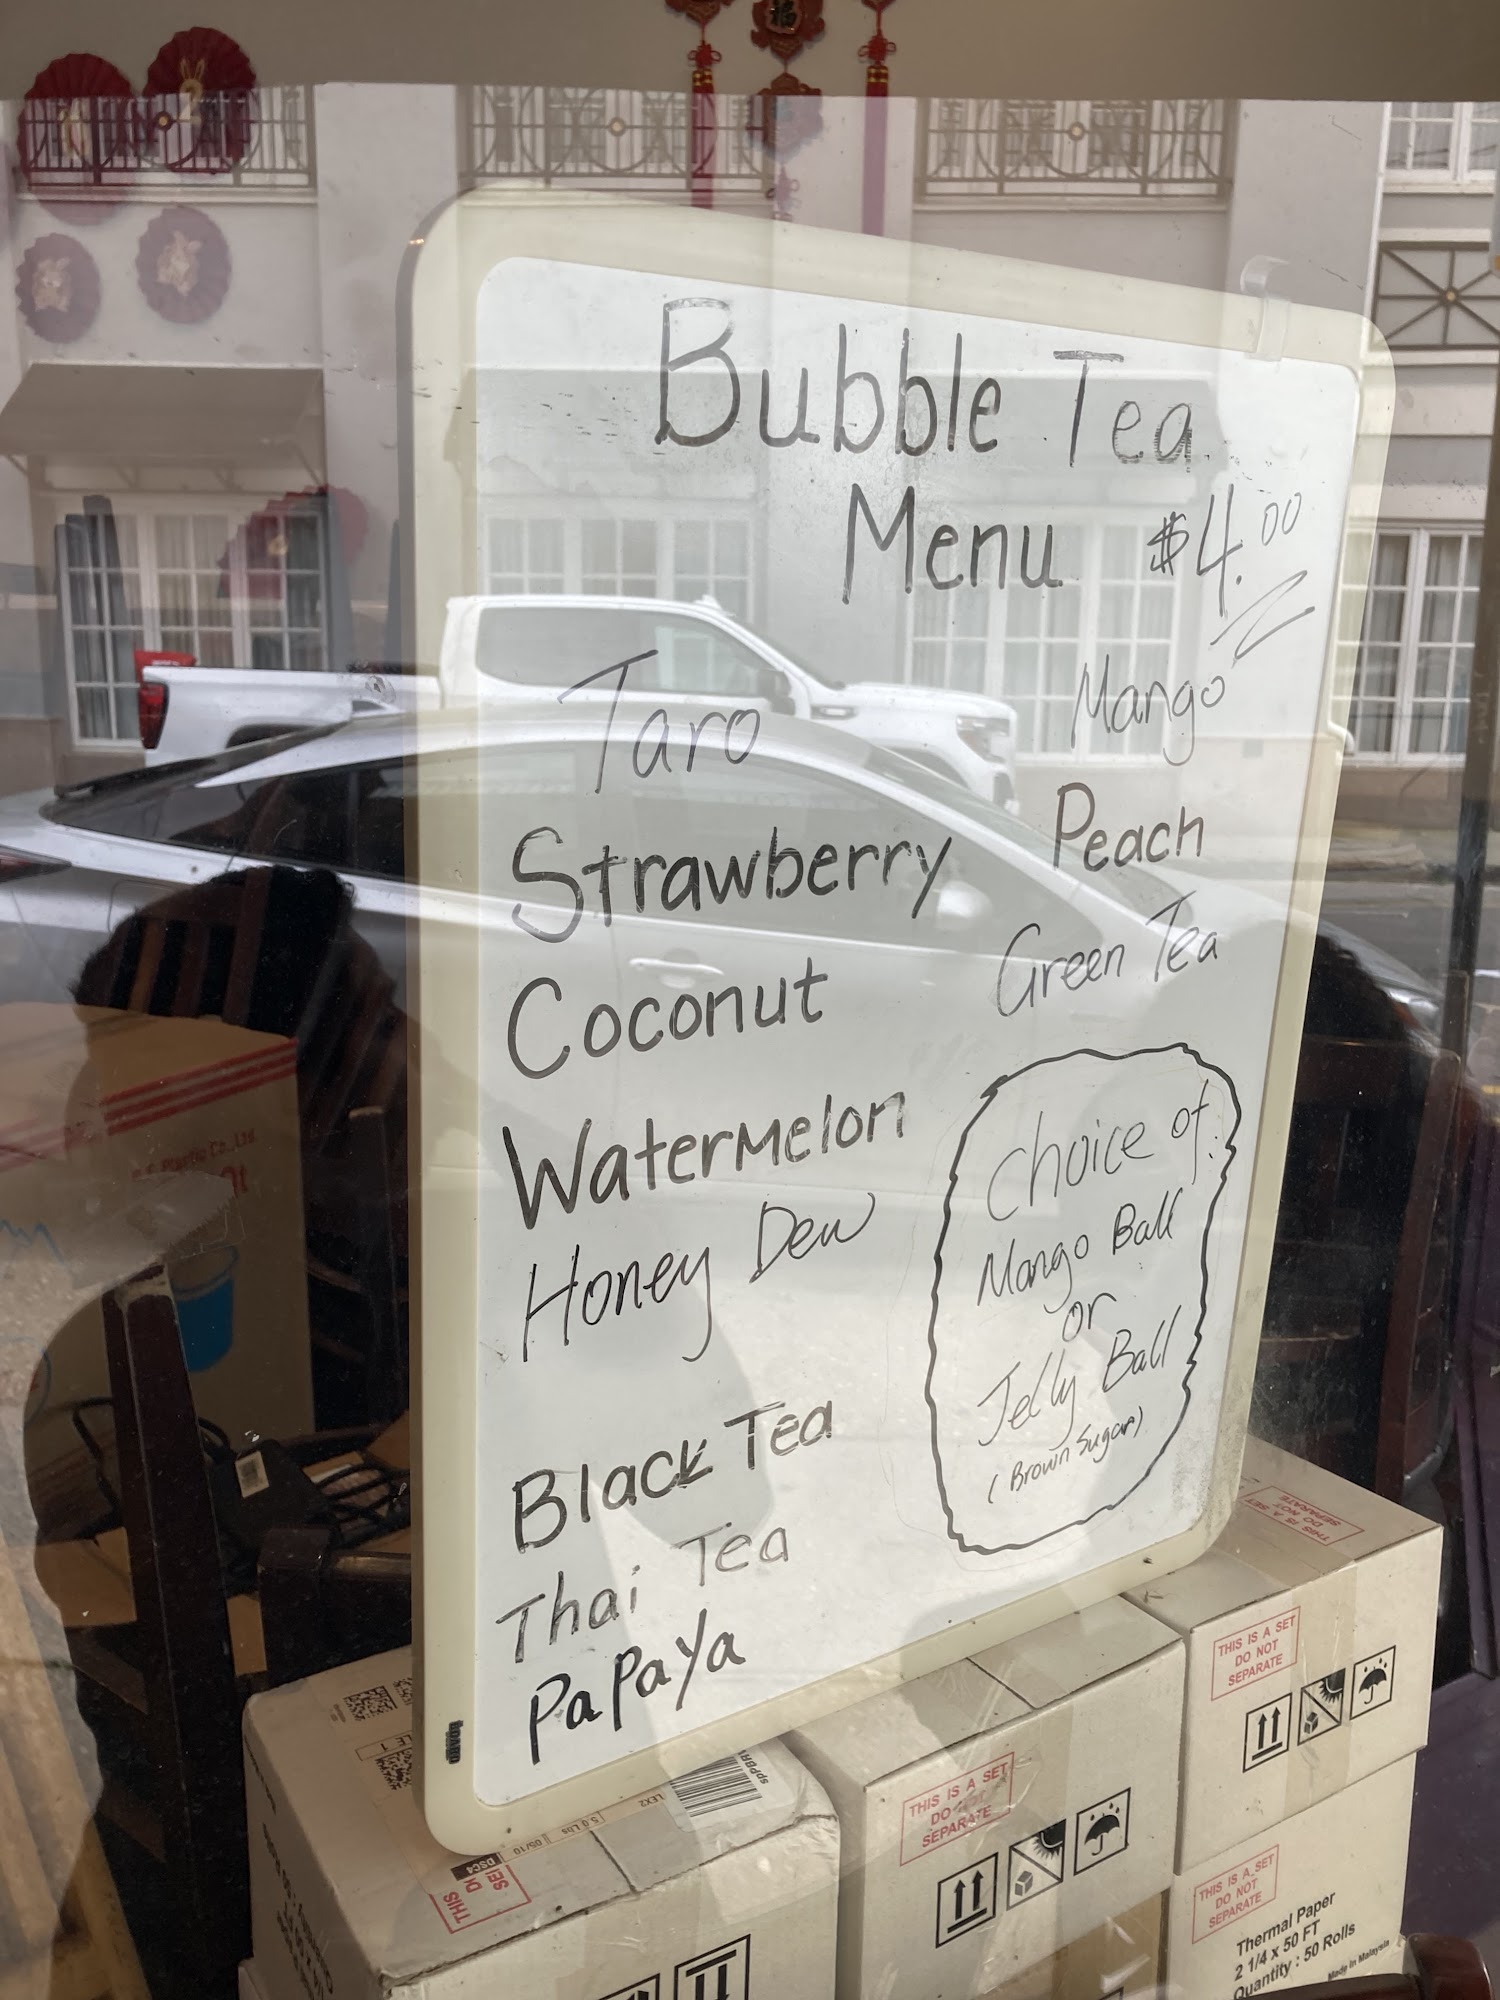 福
Bubble Tea
Menu $4.00
Taro
Strawberry
Coconut
Watermelon
Honey Dew
Black Tea
Thai Tea
Papaya
Mango
Peach
Green Tea
Choice of:
Mango Ball
or
Jelly Ball
(Brown Sugar)
THIS IS A SET
DO NOT
SEPARATE
THIS IS A SET
DO NOT
SEPARATE
THIS IS A SET
DO NOT
SEPARATE
THIS IS A SET
DO NOT
SEPARATE
Thermal Paper
2 1/4 x 50 FT
Quantity : 50 Rolls
Made in Malaysia
LEX2
5.0 Lbs
05/10
DSC4
Plastic Co., Ltd.